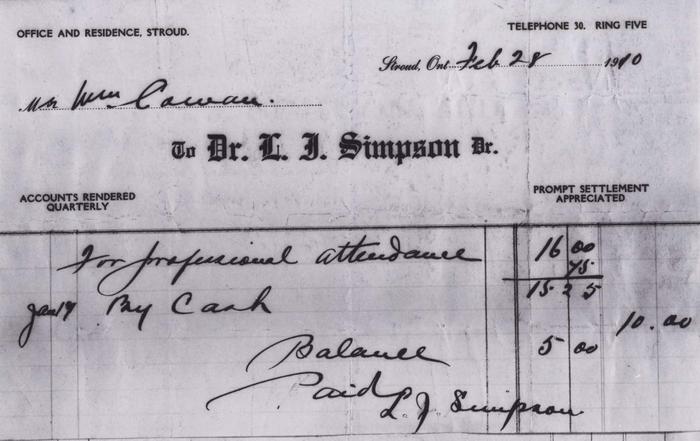 OFFICE AND RESIDENCE, STROUD.
TELEPHONE 30. RING FIVE
Stroud, Ont. Feb 28 1910
Mr Wm Cowan.
To Dr. L. J. Simpson Dr.
ACCOUNTS RENDERED
QUARTERLY
PROMPT SETTLEMENT
APPRECIATED
For professional attendance 16 00
75
15 25
Jan 19 By Cash 10.00
Balance 5 00
Paid
L. J. Simpson